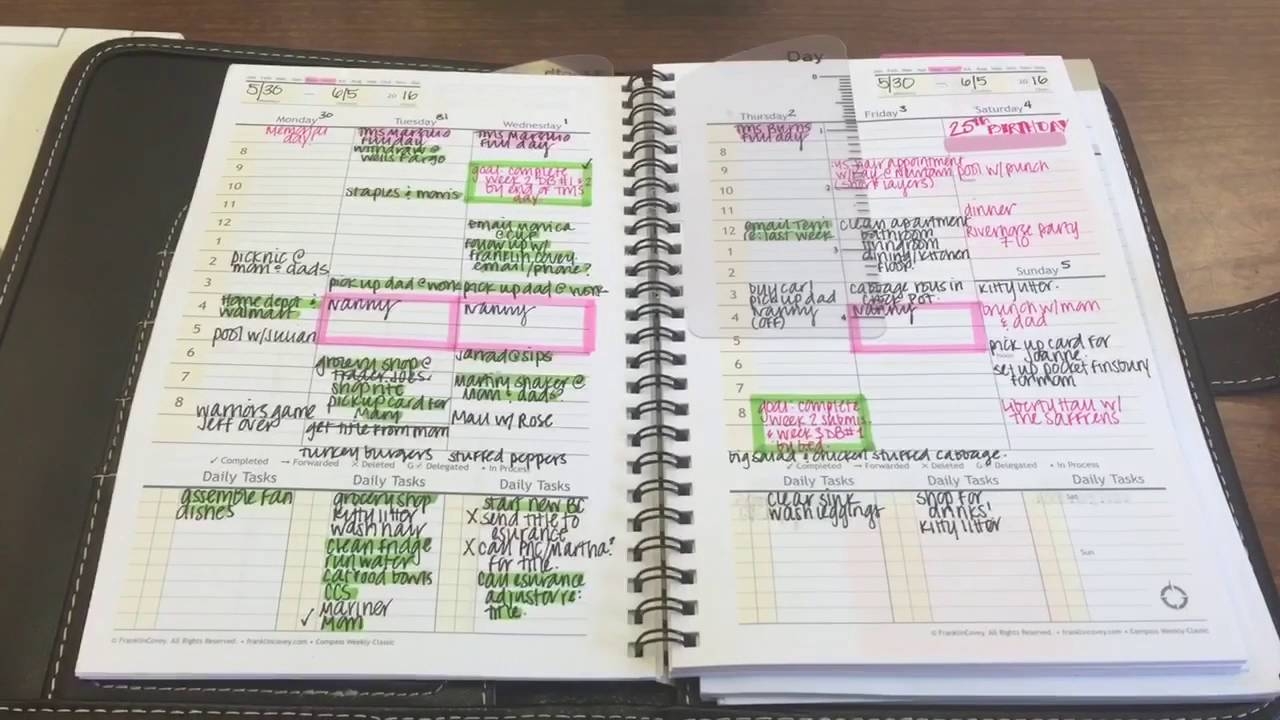 5/30 — 6/5 20 16
Monday 30
Memorial
day!
8
9
10
11
12
1
2
picknic @
mom & dads
3
4
Home depot &
walmart
5
pool w/Julian
6
7
8
warriors game
Jeff over
Tuesday 31
full day
withdraw @
wells Fargo
staples & mom's
pick up dad @ work
Nanny
grocery shop @
Trader Joes.
shoprite
pick up card for
Mary
get title from mom
turkey burgers
Wednesday 1
full day
goal: complete
week 2 DB#1 & 2
by end of TMS
day
✓
email monica
@ CUP
follow up w/
franklin covey.
email/phone?
pick up dad @ work
Nanny
Jarrad @ sips
martini shaker @
mom & dads
Mall w/ Rose
stuffed peppers
✓ Completed → Forwarded × Deleted G✓ Delegated • In Process
Daily Tasks
assemble fan
dishes
Daily Tasks
grocery shop
kitty litter
wash hair
clean fridge
run water
cat food bowls
CCS
mariner
✓ Mom
Daily Tasks
start new BC
X send title to
esurance
X call PNC/Martha?
for title.
call esurance
adjustor re:
title.
© FranklinCovey. All Rights Reserved. • franklincovey.com • Compass Weekly Classic
Day
5/30 — 6/5 20 16
Thursday 2
TMS Burns
full day
8
9
10
11
12
email Terri
re: last week
1
2
3
buy car!
pick up dad
4
Nanny
(OFF)
5
6
7
8
goal: complete
week 2 submis.
& week 3 DB#1
by bed.
big salad & chicken stuffed cabbage.
Friday 3
hair appointment
(short layers)
clean apartment
bathroom
dining room
dining/kitchen
floor.
cabbage rolls in
crock pot.
Nanny
Saturday 4
25th BIRTHDAY
pool w/ punch
dinner
Riverhorse party
710
Sunday 5
kitty litter.
brunch w/ mom
& dad
pick up card for
Joanne.
set up pocket finsbury
for mom
liberty hall w/
the saffrens
✓ Completed → Forwarded × Deleted G✓ Delegated • In Process
Daily Tasks
clear sink
wash leggings
Daily Tasks
shop for
drinks!
kitty litter
Daily Tasks
Sat
Sun
© FranklinCovey. All Rights Reserved. • franklincovey.com • Compass Weekly Classic